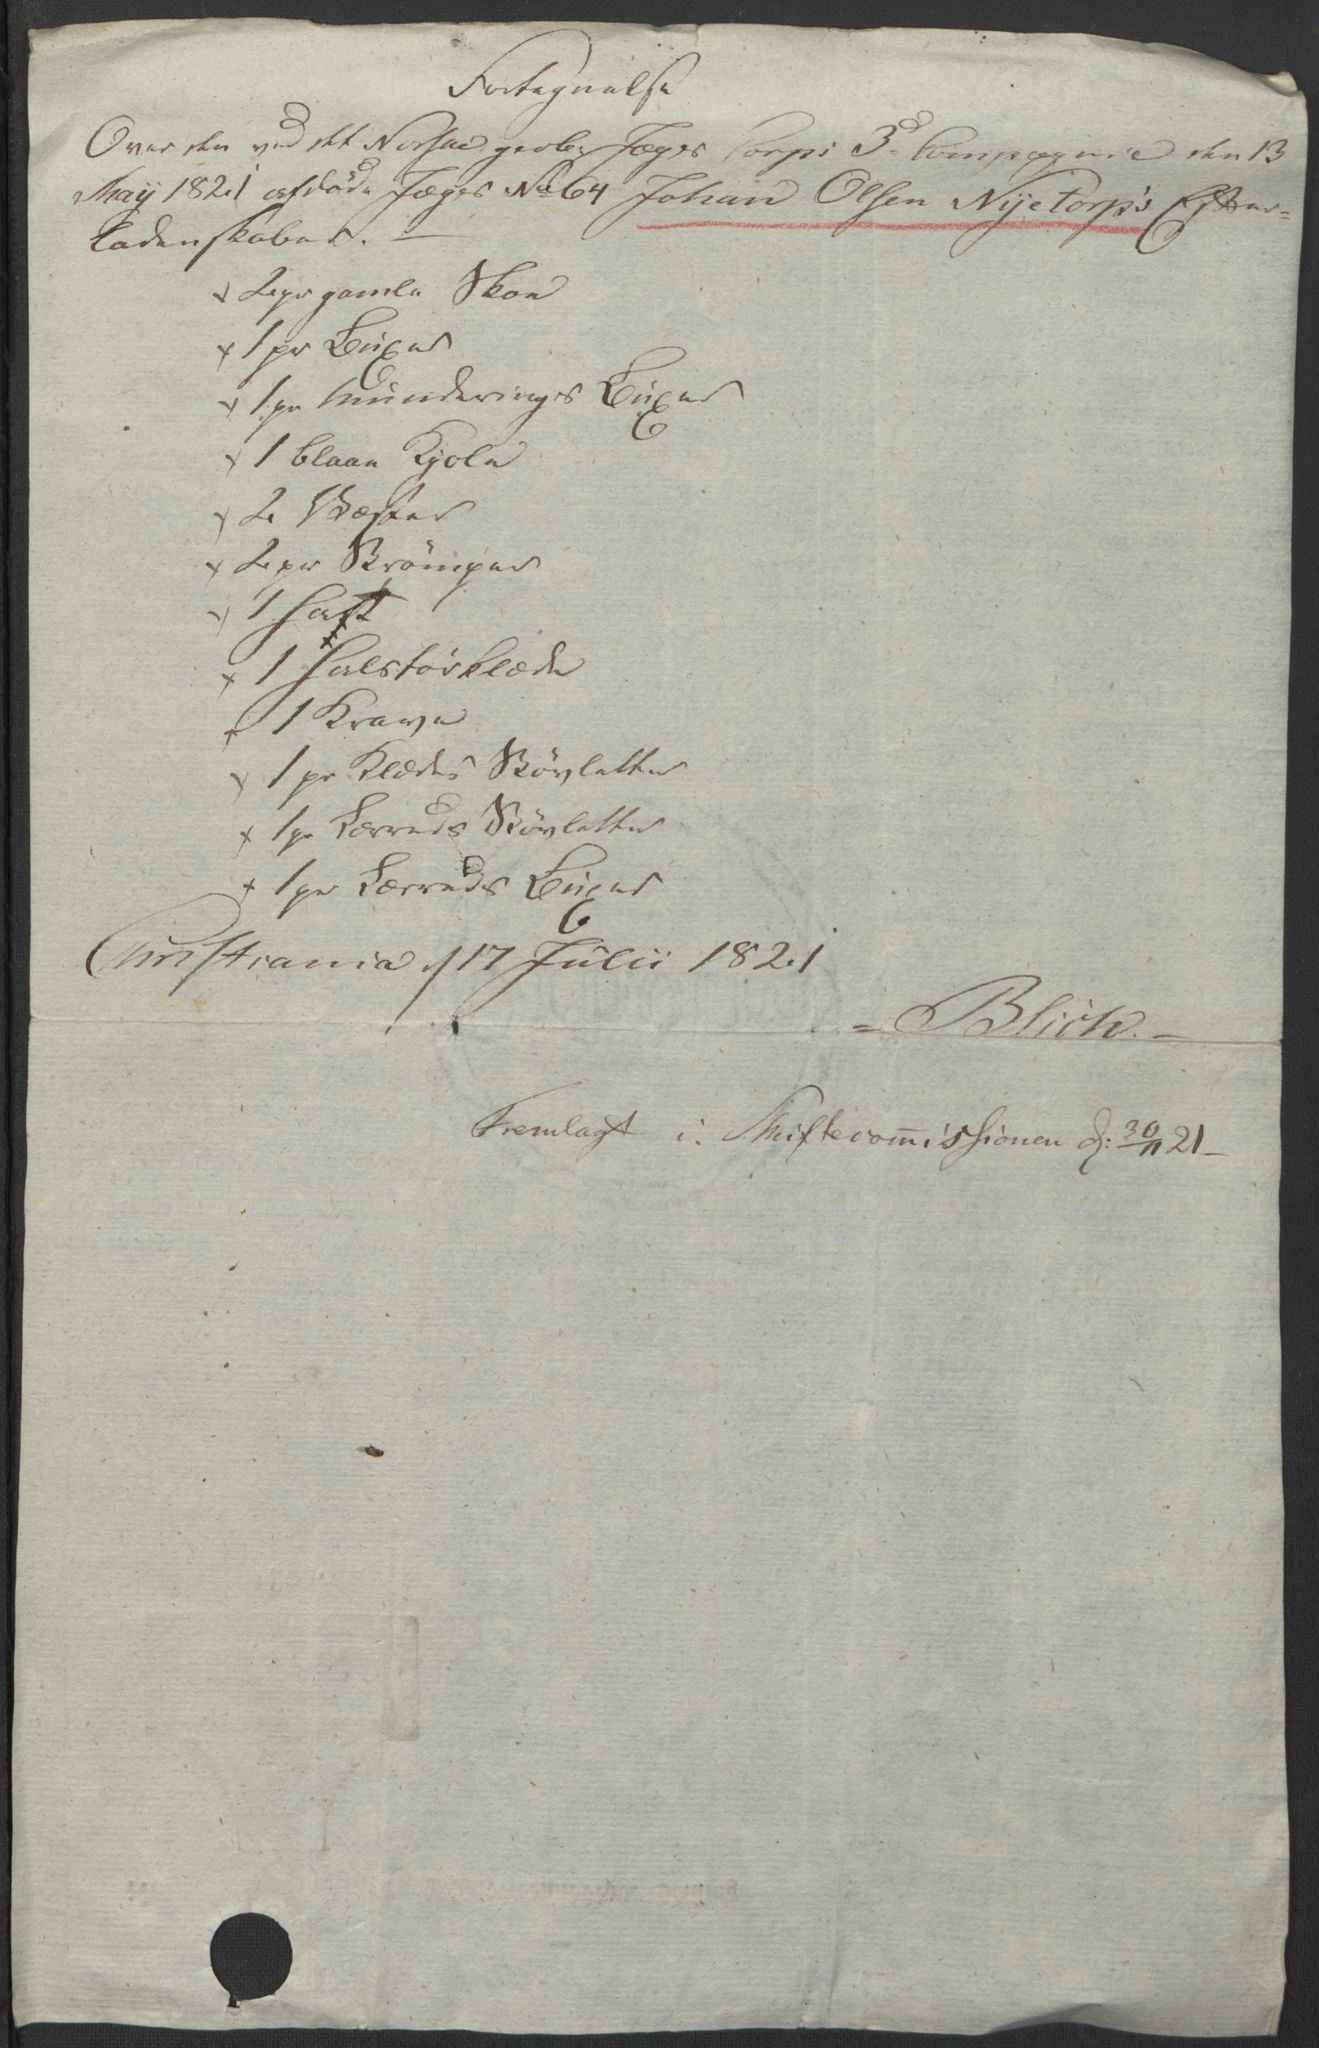 Fortegnelse
Over den ved det Norske gevb: Jæger Corps 3d Compagnie den 13
May 1821 afdöde Jæger No 64 Johan Olsen Nijetorp's Efter=
ladenskaber. —
x 2 pr gamle Skoe
x 1 pr Buxer
x 1 pr Munderings Buxer
x 1 blaae Kjole
x 2 Væster
x 2 pr Strömper
x 1 Hatt
x 1 Halstörklæde
x 1 Krave
x 1 pr Klædes Stövletter
x 1 pr Lærreds Stövletter
x 1 pr Lærreds Buxer
Christiania d 17 Julii 1821
= Blich. —
Fremlagt i Skiftecom̄issionen d: 30/11 21 —